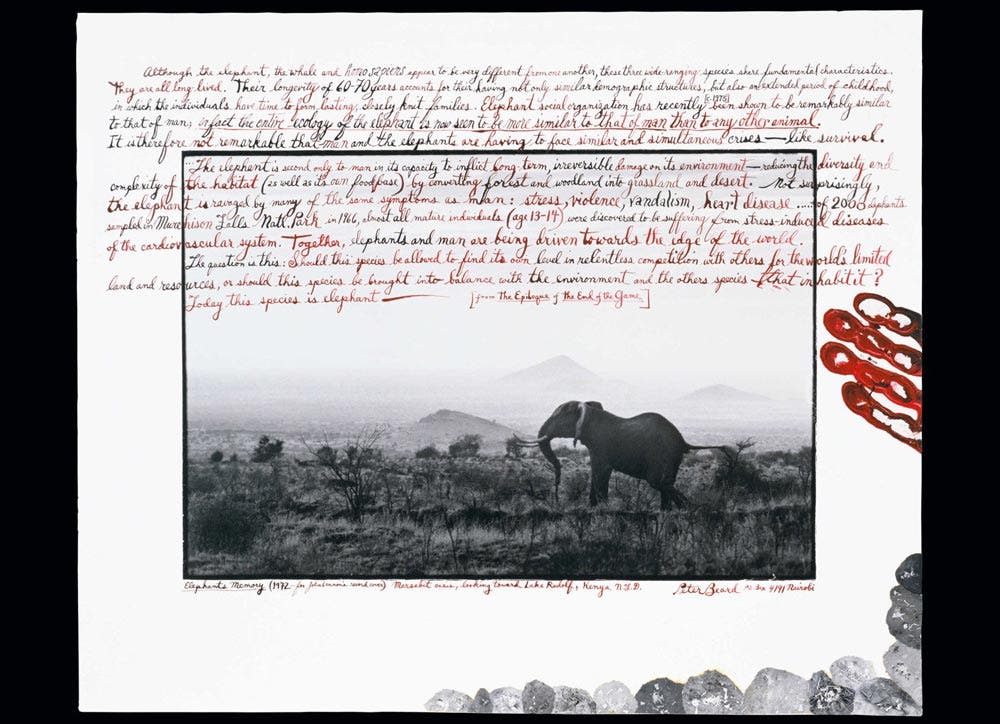 Although the elephant, the whale and homo sapiens appear to be very different from one another, these three wide-ranging species share fundamental characteristics.
They are all long-lived. Their longevity of 60-70 years accounts for their having not only similar demographic structures, but also an extended period of childhood,
in which the individuals have time to form lasting, closely knit families. Elephant social organization has recently [c. 1975] been shown to be remarkably similar
to that of man; in fact the entire ecology of the elephant is now seen to be more similar to that of man than to any other animal.
It is therefore not remarkable that man and the elephants are having to face similar and simultaneous crises — like survival.
The elephant is second only to man in its capacity to inflict long term, irreversible damage on its environment — reducing the diversity and
complexity of the habitat (as well as its own food base) by converting forest and woodland into grassland and desert. Not surprisingly,
the elephant is ravaged by many of the same symptoms as man: stress, violence, vandalism, heart disease ..... of 2000 elephants
sampled in Murchison Falls Natl. Park in 1966, almost all mature individuals (age 13-14) were discovered to be suffering from stress-induced diseases
of the cardiovascular system. Together, elephants and man are being driven towards the edge of the world.
The question is this: Should this species be allowed to find its own level in relentless competition with others for the world's limited
land and resources, or should this species be brought into balance with the environment and the others species that inhabit it?
Today this species is elephant — [from The Epilogue of The End of the Game]
Elephant's Memory (1972 for cover) Marsabit looking toward Lake Rudolf, Kenya N.F.D. Peter Beard PO Box 4191 Nairobi